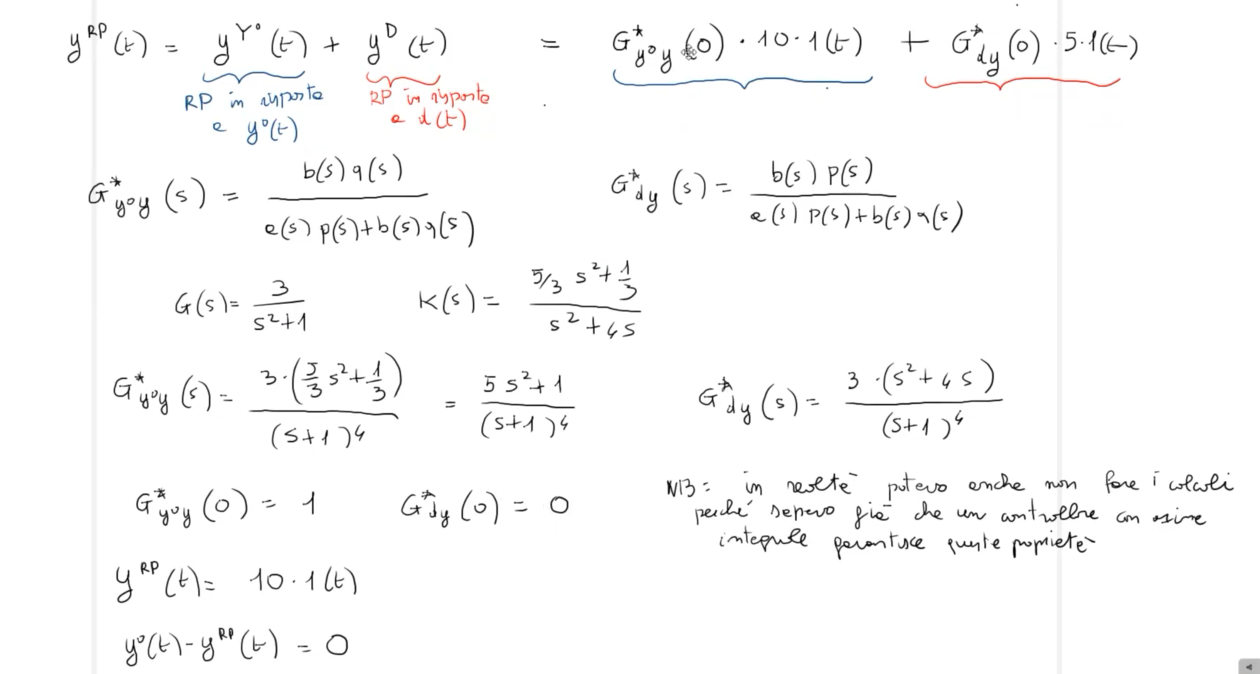 y^RP (t) = y^Y° (t) + y^D (t) = G*_y°y (0) · 10 · 1(t) + G*_dy (0) · 5 · 1(t)
RP in risposta a y°(t)
RP in risposta a d(t)
G*_y°y (s) = b(s) q(s) / a(s) p(s) + b(s) q(s)
G*_dy (s) = b(s) p(s) / a(s) p(s) + b(s) q(s)
G(s) = 3 / s²+1
K(s) = 5/3 s² + 1/3 / s² + 4s
G*_y°y (s) = 3 · (5/3 s² + 1/3) / (s+1)^4 = 5 s² + 1 / (s+1)^4
G*_dy (s) = 3 · (s² + 4 s) / (s+1)^4
G*_y°y (0) = 1
G*_dy (0) = 0
NB: in realtà potevo anche non fare i calcoli
perché sapevo già che un controllore con azione
integrale garantisce queste proprietà
y^RP (t) = 10 · 1(t)
y°(t) - y^RP (t) = 0